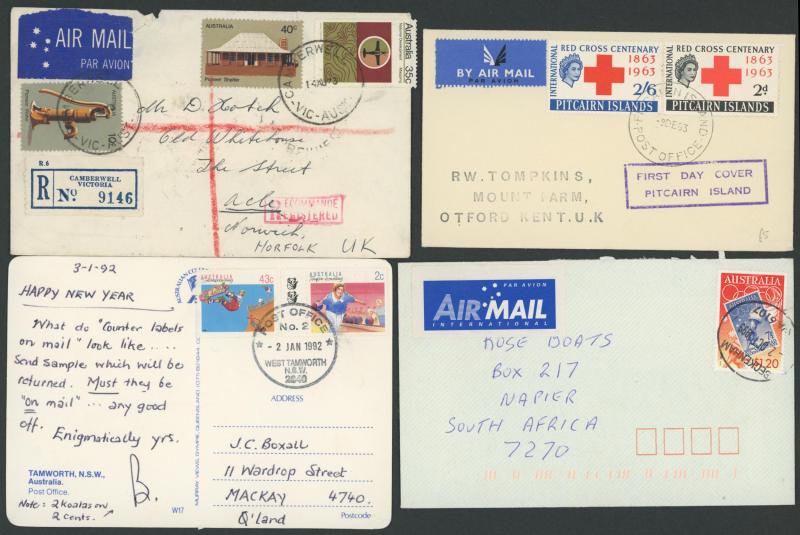 AIR MAIL
PAR AVION
AUSTRALIA
40c
Pioneer Shelter
Australia 35c
National Development
CAMBERWELL
VIC-AUST
10c
VIC-AUST
R.6
CAMBERWELL
VICTORIA
R No 9146
Mr D.
Old Whitehouse
The Street
Acle
RECOMMANDE
REGISTERED
Norwich
NORFOLK UK
BY AIR MAIL
PAR AVION
INTERNATIONAL
RED CROSS CENTENARY
1863
1963
2/6
PITCAIRN ISLANDS
INTERNATIONAL
RED CROSS CENTENARY
1863
1963
2d
PITCAIRN ISLANDS
POST OFFICE
FIRST DAY COVER
PITCAIRN ISLAND
RW. TOMPKINS,
MOUNT FARM,
OTFORD KENT. U.K
3-1-92
HAPPY NEW YEAR
What do "Counter labels
on mail" look like ....
Send sample which will be
returned. Must they be
"on mail" ... any good
off.
Enigmatically yrs.
B.
TAMWORTH, N.S.W.,
Australia.
Post Office.
Note: 2 Koalas on
2 cents.
W17
AUSTRALIA 43c
AUSTRALIA 2c
POST OFFICE
No. 2
- 2 JAN 1992
WEST TAMWORTH
N.S.W.
2340
ADDRESS
J.C. Boxall
11 Wardrop Street
MACKAY 4740.
Q'land
Postcode
PAR AVION
AIR MAIL
INTERNATIONAL
AUSTRALIA
$1.20
BECKENHAM
ROSE BOATS
BOX 217
NAPIER
SOUTH AFRICA
7270